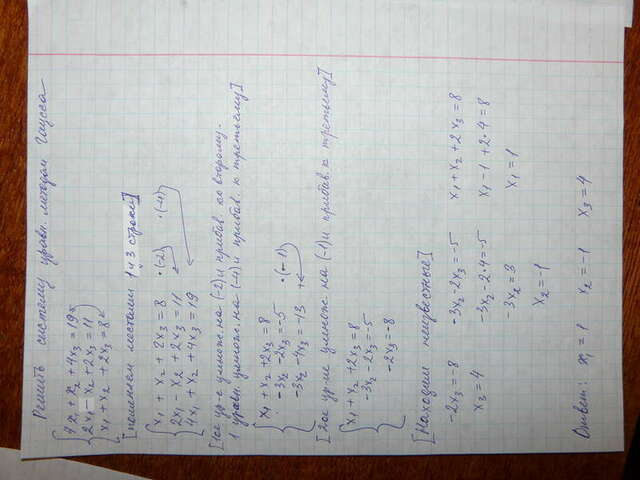 Решить систему уравн. методом Гаусса
4x₁ + x₂ + 4x₃ = 19
2x₁ - x₂ + 2x₃ = 11
x₁ + x₂ + 2x₃ = 8
[поменяем местами 1 и 3 строки]
x₁ + x₂ + 2x₃ = 8 ·(-2) ·(-4)
2x₁ - x₂ + 2x₃ = 11
4x₁ + x₂ + 4x₃ = 19
[1ое ур-е умнож. на (-2) и прибав. ко второму.
1 уравн. умнож. на (-4) и прибав. к третьему]
x₁ + x₂ + 2x₃ = 8
-3x₂ - 2x₃ = -5 ·(-1)
-3x₂ - 4x₃ = -13 +
[2ое ур-ие умнож на (-1) и прибав. к третьему]
x₁ + x₂ + 2x₃ = 8
-3x₂ - 2x₃ = -5
-2x₃ = -8
[Находим неизвестные]
-2x₃ = -8 -3x₂ - 2x₃ = -5 x₁ + x₂ + 2x₃ = 8
x₃ = 4 -3x₂ - 2·4 = -5 x₁ - 1 + 2·4 = 8
-3x₂ = 3 x₁ = 1
x₂ = -1
Ответ: x₁ = 1 x₂ = -1 x₃ = 4